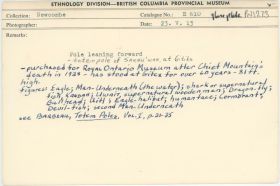 ETHNOLOGY DIVISION—BRITISH COLUMBIA PROVINCIAL MUSEUM
Collection: Newcombe Catalogue No.: E 620
Photographer: Date: 23.7.13
Pole leaning forward
- totem-pole of Sneau'wan at Gitis
- purchased for Royal Ontario Museum after Chief Mountain's
death in 1928 - has stood at Gitex for over 60 years - 81 ft.
high.
Figures: Eagle; Man-Underneath (the water); shark or supernatural
fish, supernatural wooden man; Dragon-fly;
Bullhead; Eagle-halibut; human face; Cormorant;
Devil-fish; second Man-Underneath
see Barbeau, Totem Poles, Vol. I, p. 21-25